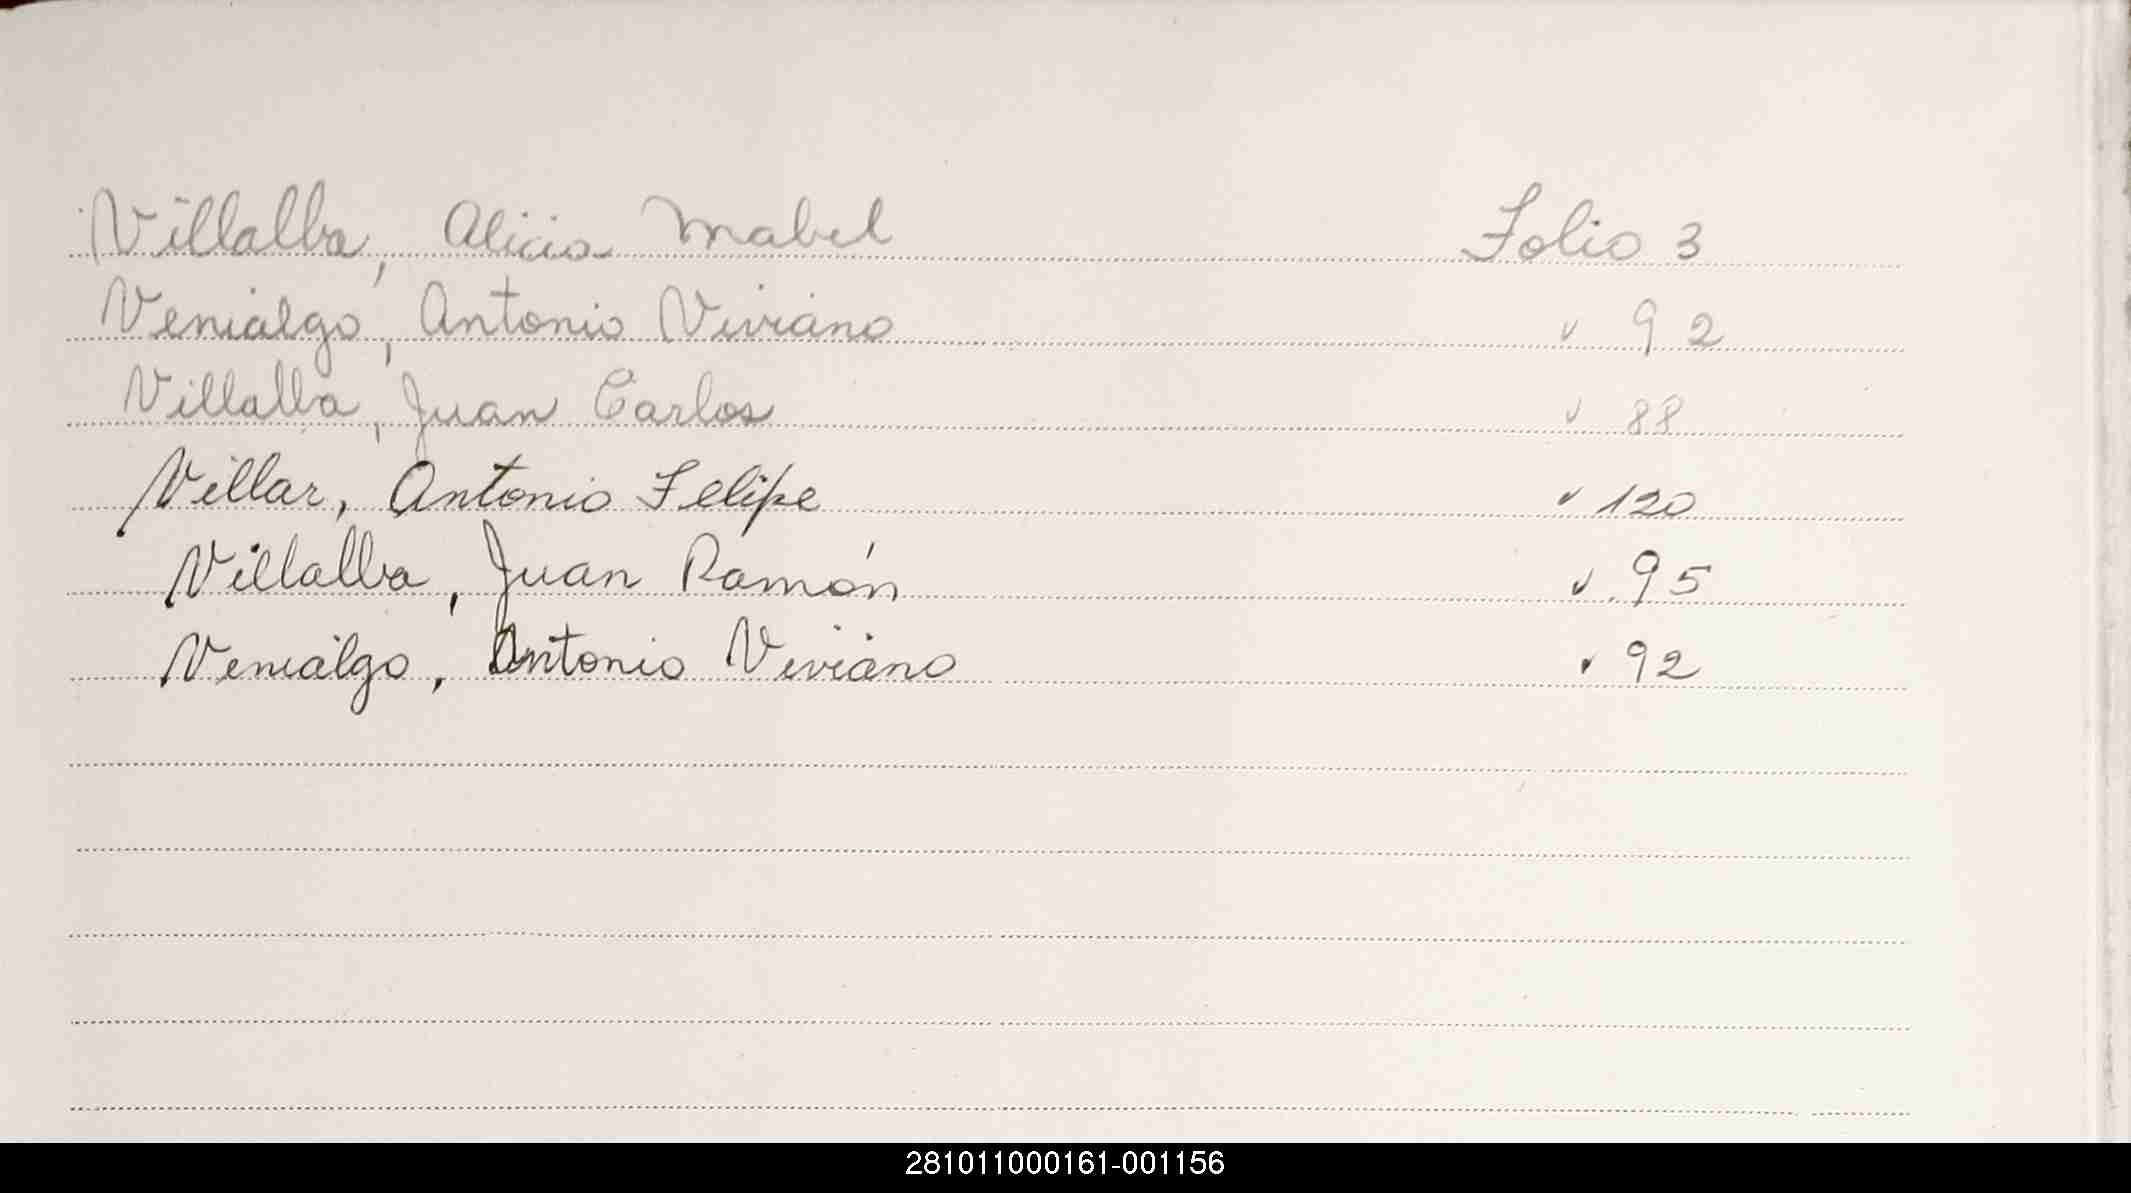 Villalba, Alicia Mabel Folio 3
Venialgo, Antonio Viviano " 92
Villalba, Juan Carlos " 88
Villar, Antonio Felipe " 120
Villalba, Juan Ramón " 95
Venialgo, Antonio Viviano " 92
281011000161-001156